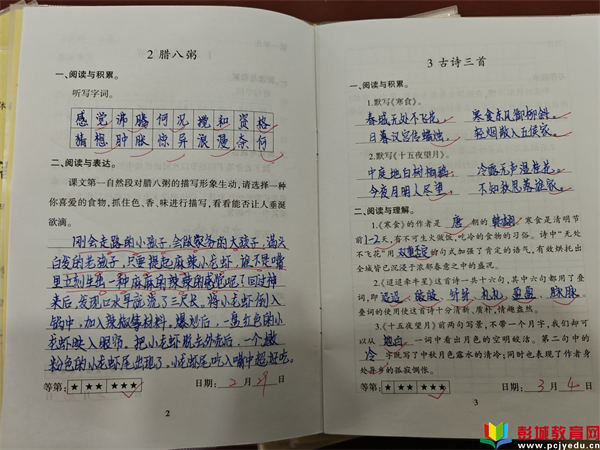 2 腊八粥
一、阅读与积累。
听写字词。
感觉 沸腾 何况 搅和 资格
猜想 肿胀 惊异 浪漫 奈何
二、阅读与表达。
课文第一自然段对腊八粥的描写形象生动,请选择一种
你喜爱的食物,抓住色、香、味进行描写,看看能否让人垂涎
欲滴。
刚会走路的小孩子,会做数务的大孩子,满头
白发的老孩子,只要提起麻辣小龙虾,谁不是嘴
里立刻生第一种麻麻的辣辣的感觉呢?回过神
来后,发现口水早已流了三尺长,将小龙虾倒入
锅中,加入辣椒等材料,爆炒后,一盘红色的小
龙虾映入眼帘,把小龙虾脱去外壳后,一个嫩
粉色的小龙虾尾出现了,小龙虾吃入嘴中超好吃。
等第: ★ ★★ ★★★
日期: 2 月 29 日
2
3 古诗三首
一、阅读与积累。
1.默写《寒食》。
春城无处不飞花, 寒食东风御柳斜。
日暮汉宫传蜡烛, 轻烟散入五侯家。
2.默写《十五夜望月》。
中庭地白树栖鸦, 冷露无声湿桂花。
今夜月明人尽望, 不知秋思落谁家。
二、阅读与理解。
1.《寒食》的作者是 唐 朝的 韩翃 寒食是清明节
前 1-2 天,有不可生火做饭,吃冷的食物的习俗。诗中“无处
不飞花”用 双重否定 的句式加强了肯定的语气,有效烘托出
全城皆已沉浸于浓郁春意之中的盛况。
2.《迢迢牵牛星》这首诗一共十六句,其中六句都用了叠
词,即 迢迢 、 皎皎 、 纤纤 、 札札 、 盈盈 、 脉脉 。
叠词的使用使这首诗十分清新、质朴,情趣盎然。
3.《十五夜望月》前两句写景,不带一个月字,我们却可
以从 地白 一词中看出月色的空明皎洁。第二句中的
冷 字既写了中秋月色露水的清冷;同时也表现了作者身
处异乡的孤寂惆怅。
等第: ★ ★★ ★★★
日期: 3 月 4 日
3
彭城教育网
www.pcjyedu.com